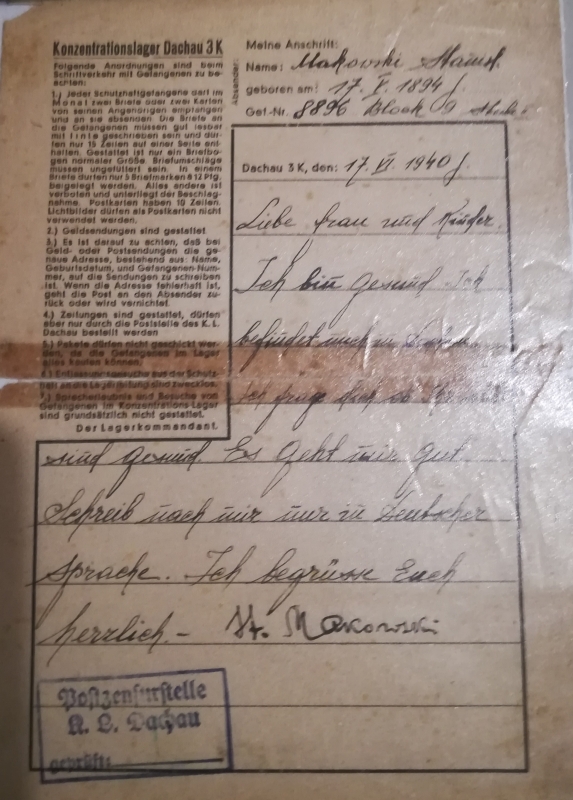 Konzentrationslager Dachau 3 K
Folgende Anordnungen sind beim
Schriftverkehr mit Gefangenen zu be-
achten:
1.) Jeder Schutzhaftgefangene darf im
Monat zwei Briefe oder zwei Karten
von seinen Angehörigen empfangen
und an sie absenden. Die Briefe an
die Gefangenen müssen gut lesbar
mit Tinte geschrieben sein und dür-
fen nur 15 Zeilen auf einer Seite ent-
halten. Gestattet ist nur ein Briefbo-
gen normaler Größe. Briefumschläge
müssen ungefüttert sein. In einem
Briefe dürfen nur 5 Briefmarken à 12 Pfg.
beigelegt werden. Alles andere ist
verboten und unterliegt der Beschlag-
nahme. Postkarten haben 10 Zeilen.
Lichtbilder dürfen als Postkarten nicht
verwendet werden.
2.) Geldsendungen sind gestattet
3.) Es ist darauf zu achten, daß bei
Geld- oder Postsendungen die ge-
naue Adresse, bestehend aus: Name,
Geburtsdatum, und Gefangenen-Num-
mer, auf die Sendungen zu schreiben
ist. Wenn die Adresse fehlerhaft ist,
geht die Post an den Absender zu-
rück oder wird vernichtet.
4.) Zeitungen sind gestattet, dürfen
aber nur durch die Poststelle des K. L.
Dachau bestellt werden
5.) Pakete dürfen nicht geschickt wer-
den, da die Gefangenen im Lager
alles kaufen können.
6.) Entlassungsgesuche aus der Schutz-
haft an die Lagerleitung sind zwecklos.
7.) Sprecherlaubnis und Besuche von
Gefangenen im Konzentrations-Lager
sind grundsätzlich nicht gestattet.
Der Lagerkommandant.
Absender:
Meine Anschrift:
Name: Makowski
geboren am: 17. V. 1894
Gef.-Nr. 8896 Block 9
Dachau 3 K, den: 17. VI. 1940
Liebe frau und Kinder.
Ich bin gesund. Ich
befindet mich in
Ich frage dich ob
sind gesund. Es Geht mir gut
Schreib nach mir nur in Deutscher
Sprache. Ich begrüsse Euch
herzlich.- St. Makowski
Postzensurstelle
K. L. Dachau
geprüft: